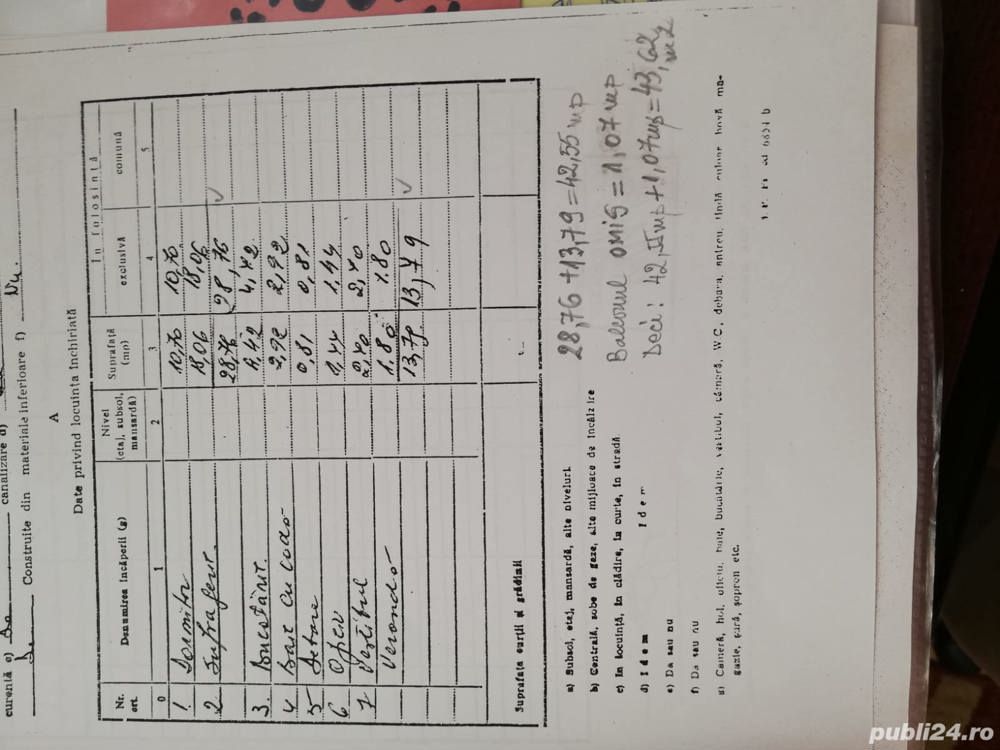 curentă c) Da canalizare d)
Da Construite din materiale inferioare f) Nu.
A
Date privind locuința închiriată
Nr. crt. Denumirea încăperii (g) Nivel (etaj, subsol, mansardă) Suprafață (mp) În folosință
exclusivă comună
0 1 2 3 4 5
1 Dormitor 10,70 10,70
2 Sufragerie. 18,06 18,06
28,76 28,76 ✓
3. Bucătărie. 4,42 4,42
4 Baie cu cada 2,92 2,92
5 0,81 0,81
6 Oficiu 1,44 1,44
7 Vestibul 2,40 2,40
Veranda 1.80 1.80
13,79 13,79 ✓
Suprafața curții și grădinii
a) Subsol, etaj, mansardă, alte niveluri.
b) Centrală, sobe de gaze, alte mijloace de încălzire
c) În locuință, în clădire, la curte, în stradă
d) Idem Idem
e) Da sau nu
f) Da sau nu
g) Cameră, hol, oficiu, baie, bucătărie, vestibul, cămară, WC, debara, antreu, tindă, boxă, magazie, șură, șopron etc.
28,76 + 13,79 = 42,55 mp
Balconul omis = 1,07 mp
Deci: mp + 1,07 mp = 43,62 m2
publi24.ro